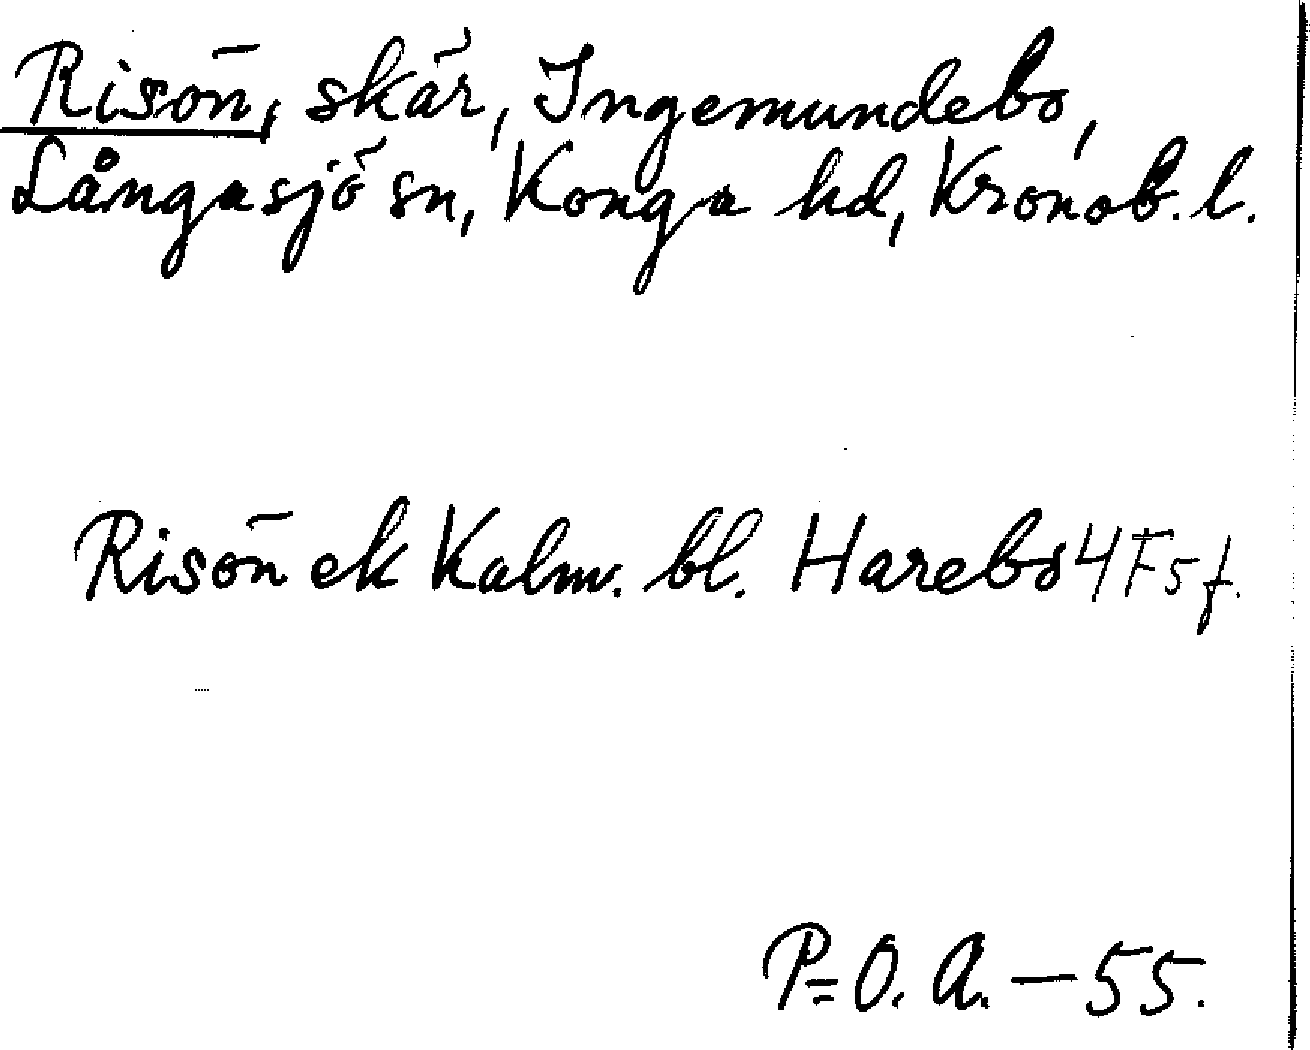 Risön, skär, Ingemundebo,
Långasjö sn, Konga hd, Kronob. l.
Risön ek Kalm. bl. Harebo 4F5f.
P=O. A. — 55.